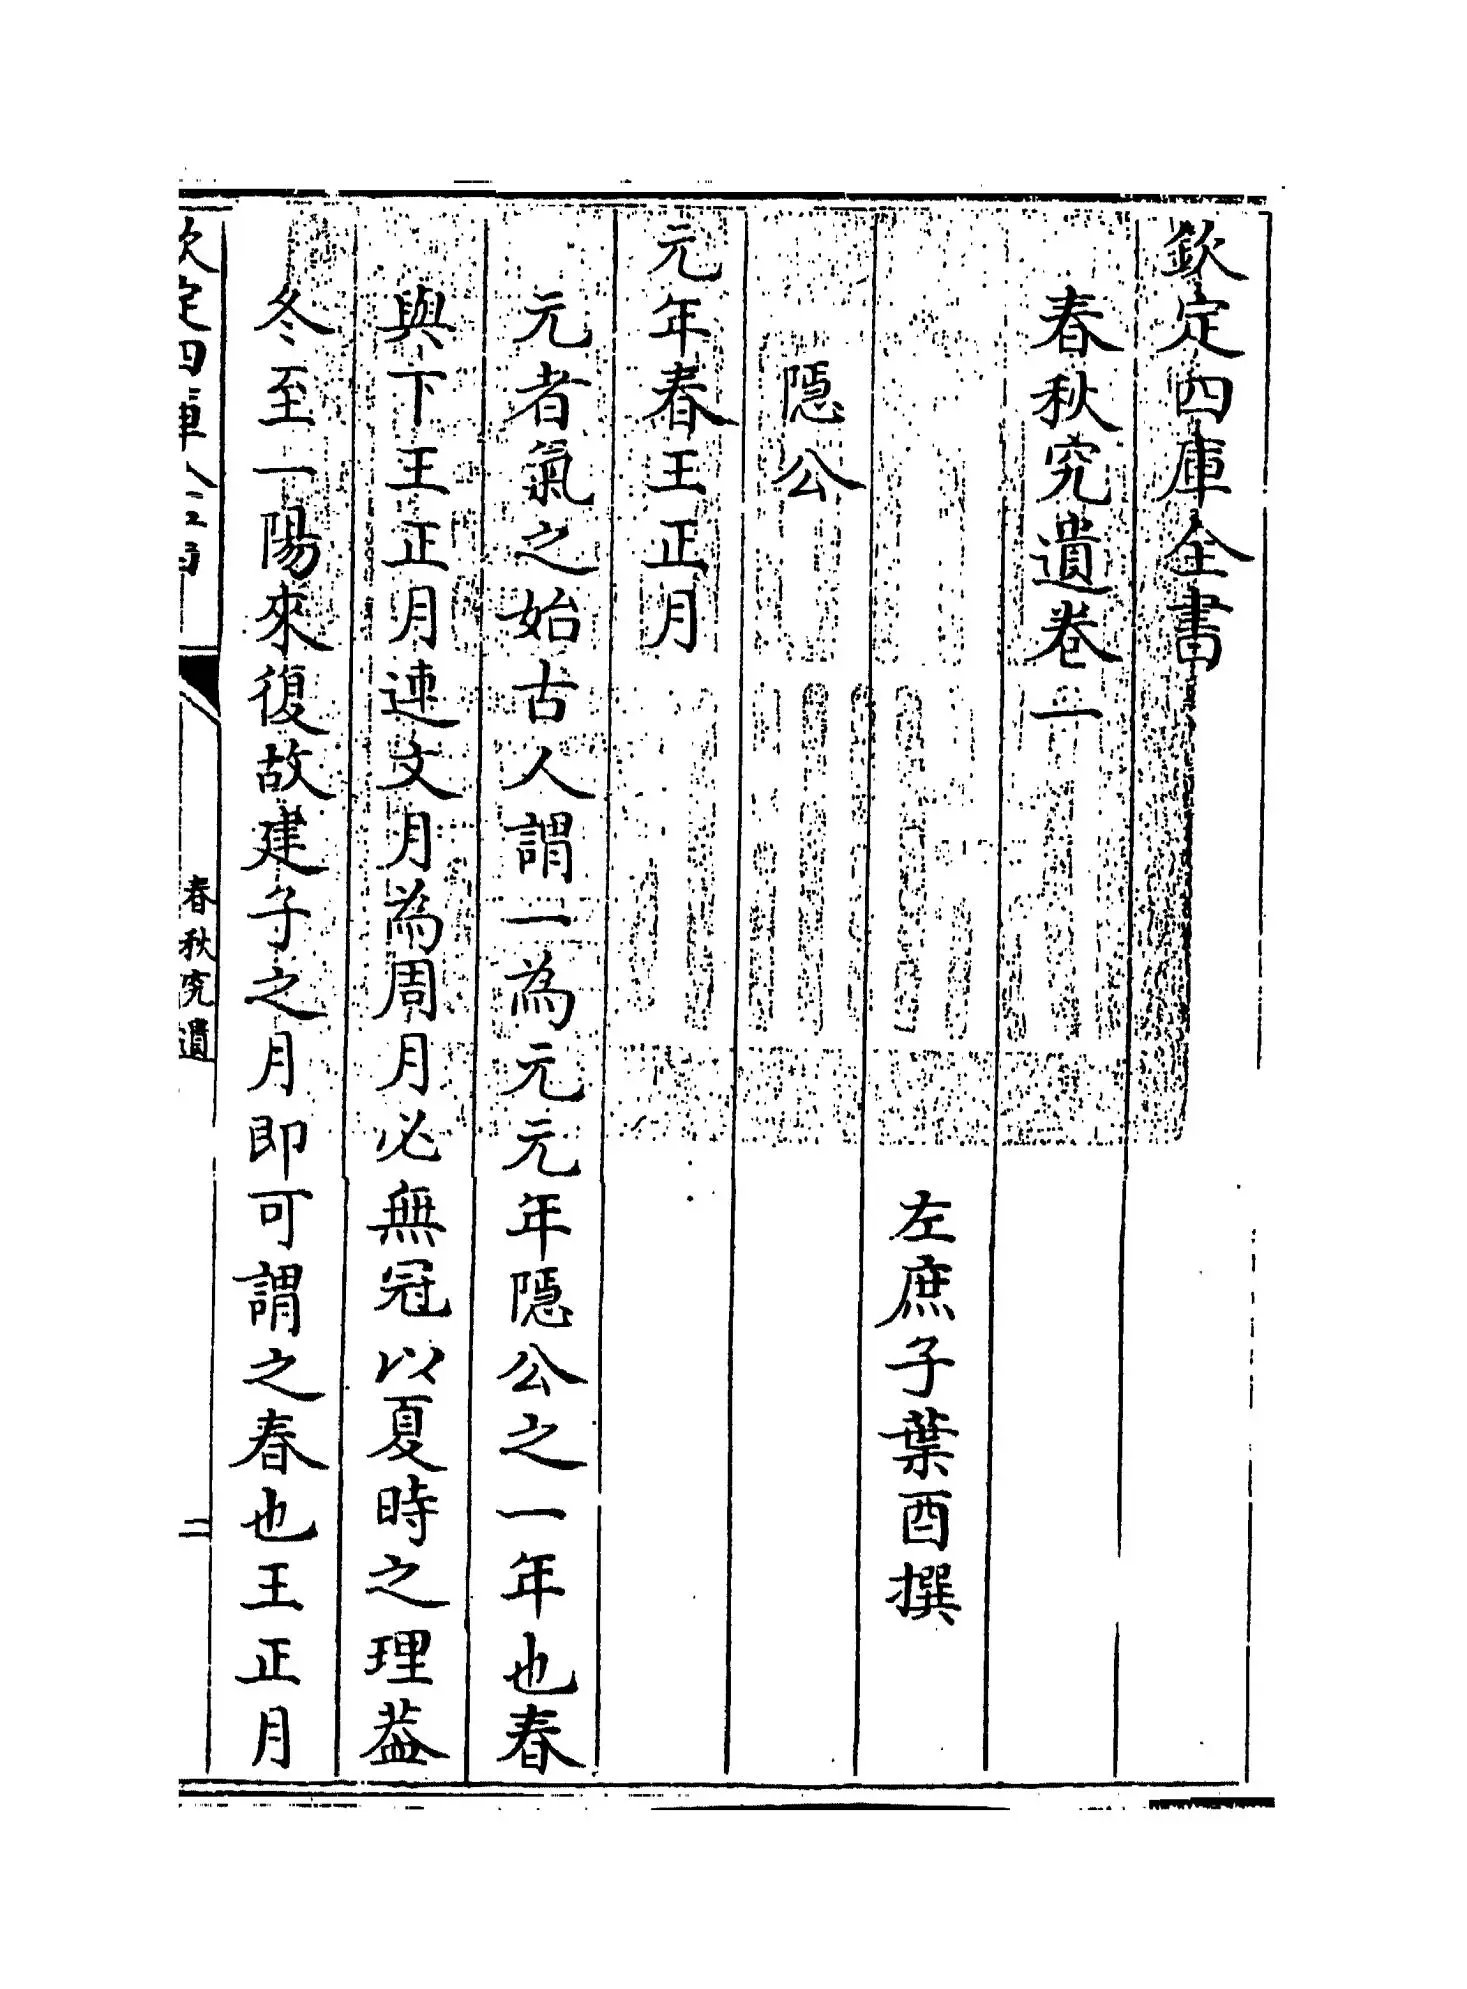 欽定四庫全書
春秋究遺卷一
左庶子葉酉撰
隱公
元年春王正月
元者氣之始古人謂一為元元年隱公之一年也春
與下王正月連文月為周月必無冠以夏時之理葢
冬至一陽來復故建子之月即可謂之春也王正月
欽定四庫全書
春秋究遺
二